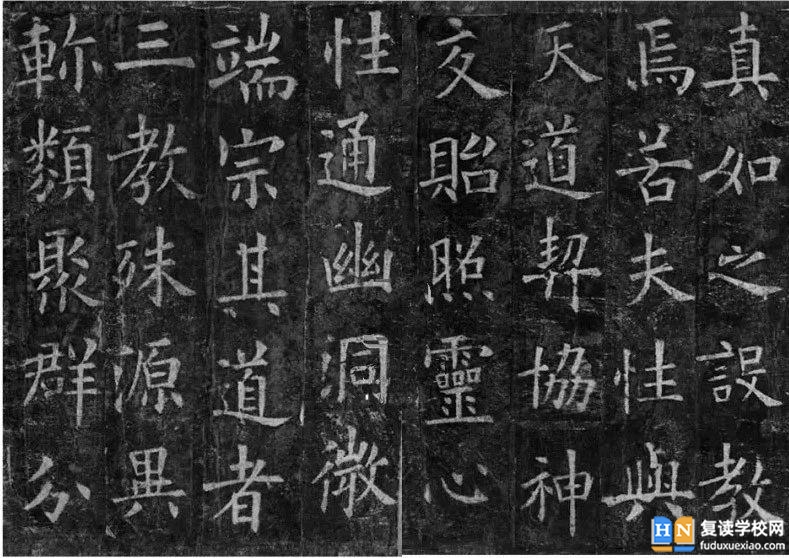 真如之設教
焉若夫性與
天道契協神
交貽照靈心
性通幽洞微
端宗其道者
三教殊源異
軫類聚群分
HN
复读学校网
fuduxuexiao.com